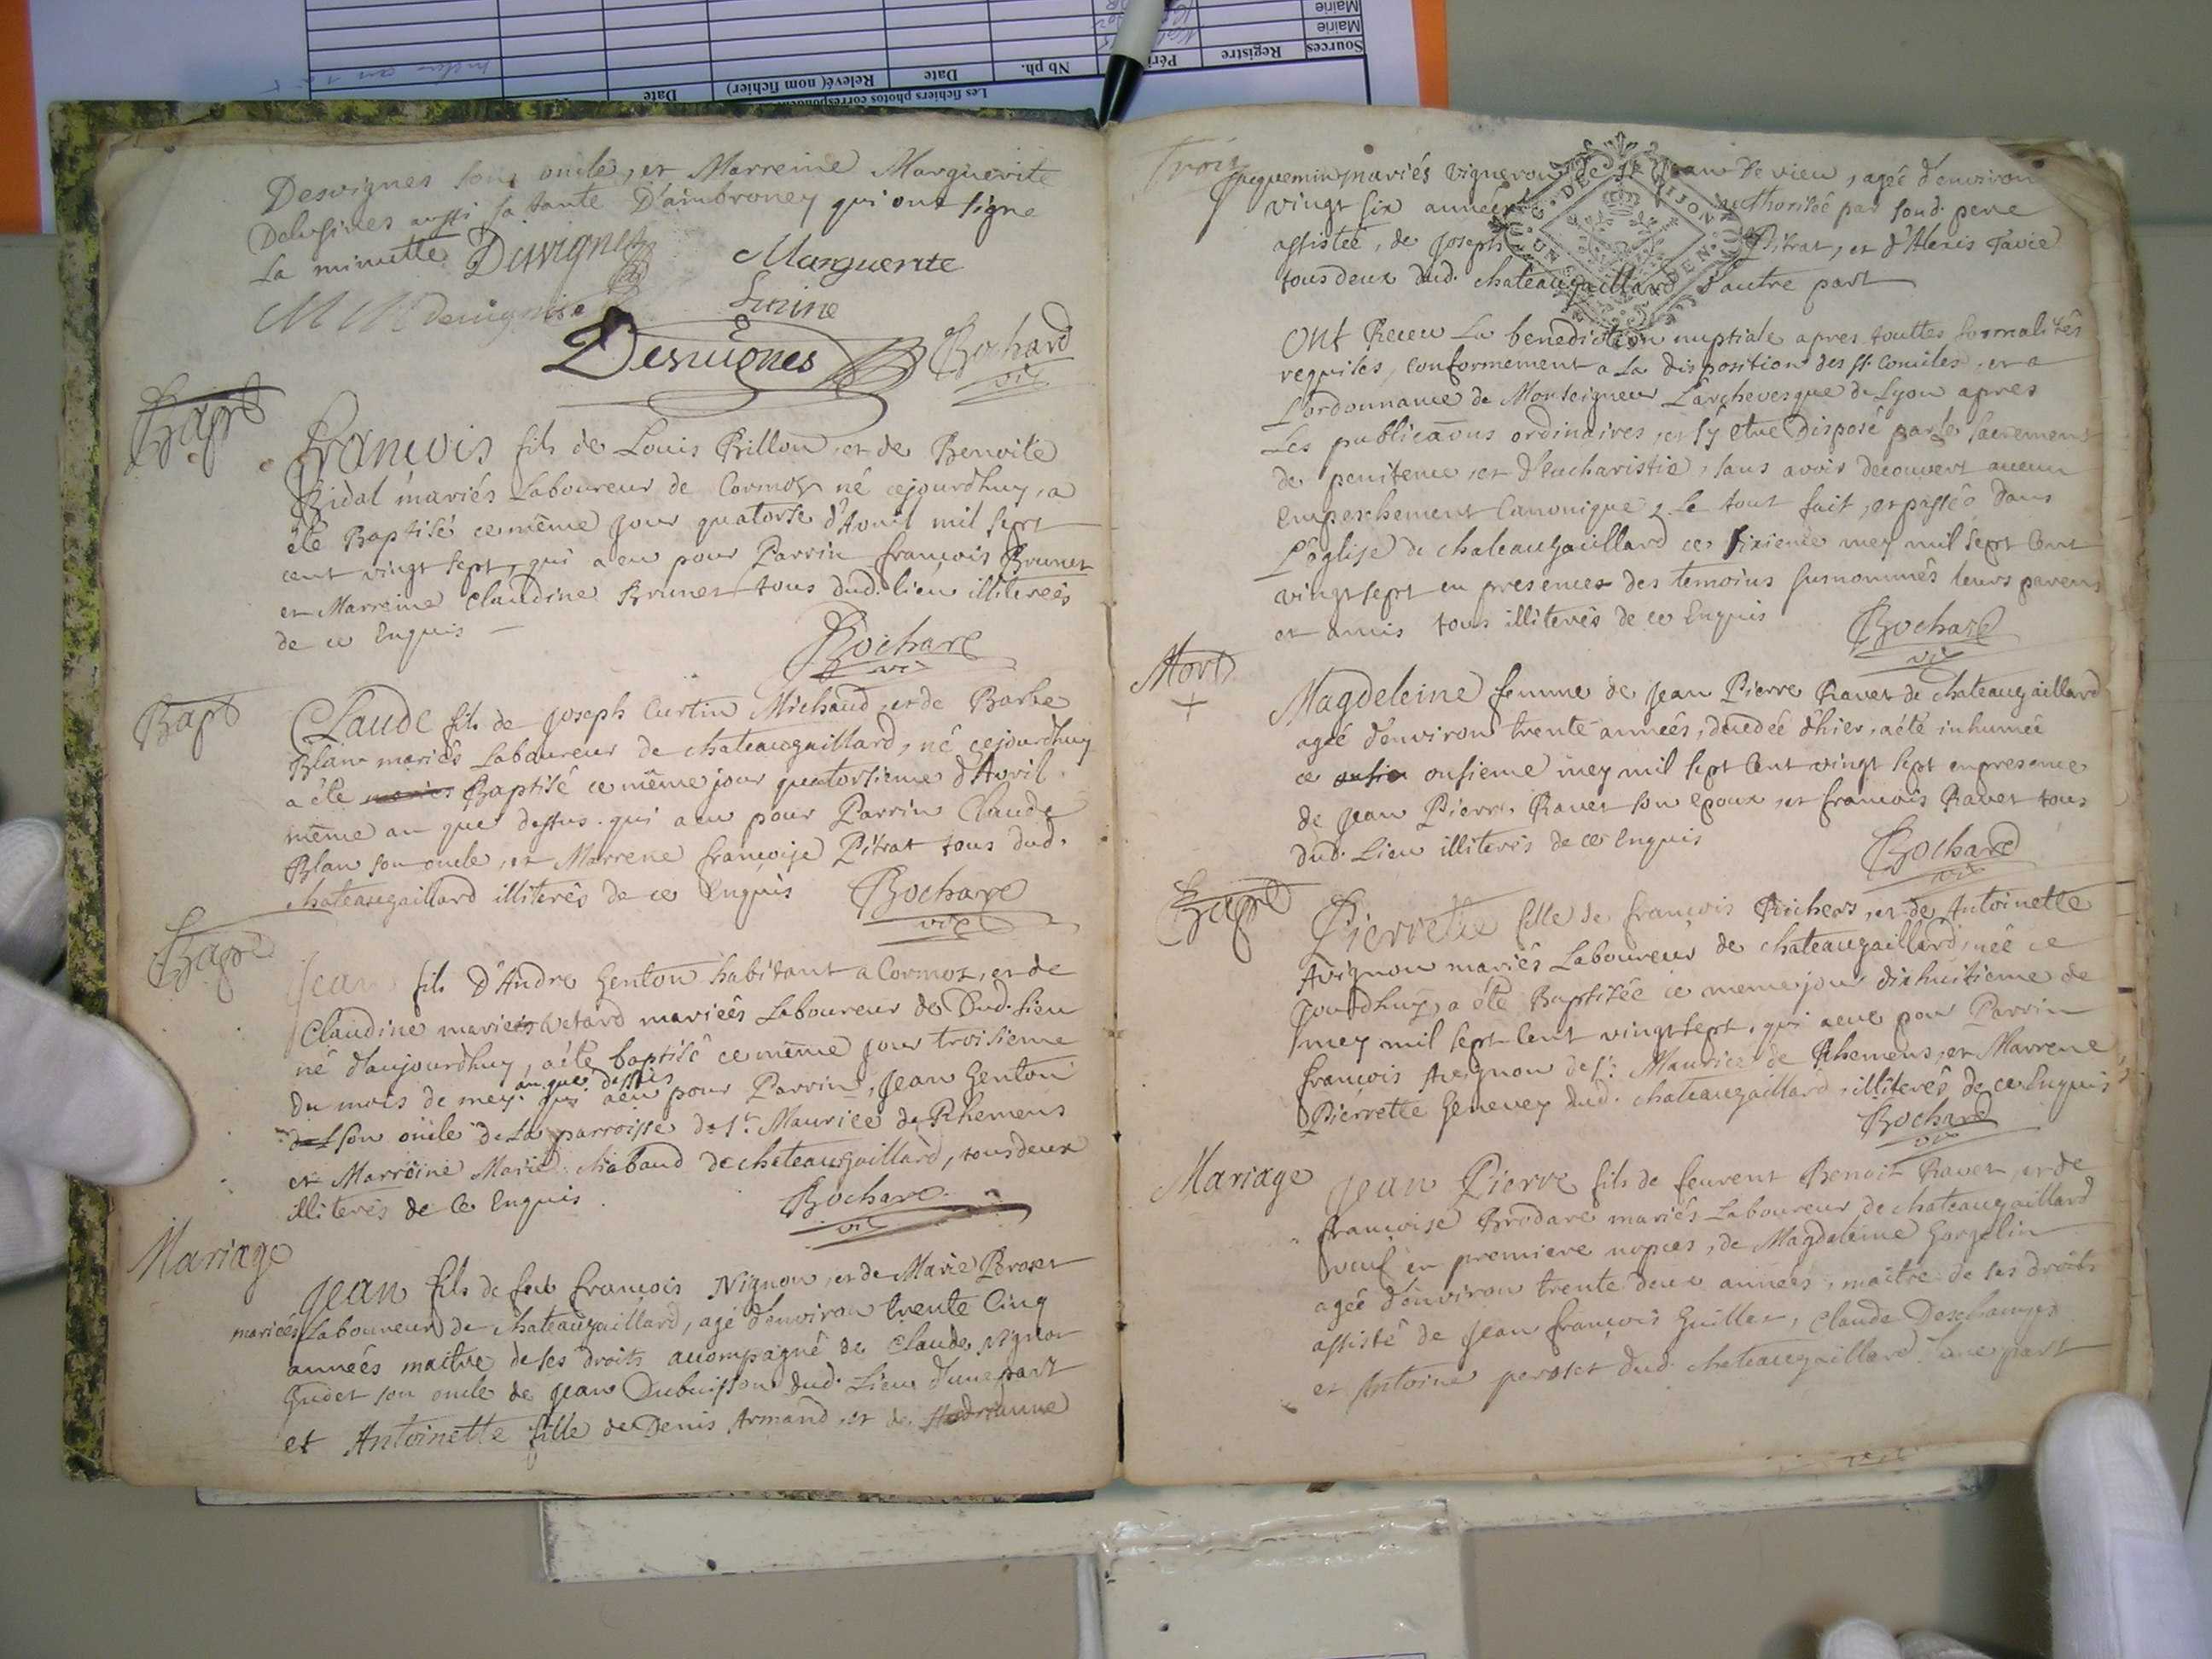 Sources
Registre
Péri
Nb ph.
Date
Relevé (nom fichier)
Date
Mairie
Mairie
Les fichiers photos correspondent
Desvignes son oncle, et Marreine Marguerite
aussi sa tante D'ambroney qui ont signe
La minutte Desvignes Marguerite
Desvignes Bochard
vic
Bapt
francois fils de Louis Billon, et de Benoite
Bidal mariés Laboureur de Cormoz né cejourdhuy, a
été Baptisé ce même jour quatorse d'Avril mil sept
cent vingt sept, qui a eu pour Parrin françois Brunet
et Marreine Claudine Brunet tous dud. lieu illiterés
de ce Enquis
Bochard
vic
Bapt
Claude fils de Joseph Curtin Michaud et de Barbe
Blanc mariés Laboureur de chateaugaillard, né cejourdhuy
a été Baptisé ce même jour quatorsieme d'Avril
même an que dessus. qui a eu pour Parrin Claude
Blan son oncle, et Marrene françoise Pitrat tous dud.
chateaugaillard illiterés de ce Enquis Bochard
vic
Bapt
Jean fils D'Andre Genton habitant a Cormoz, et de
Claudine mariés laboureur de Dud. lieu
né d'aujourdhuy, a été baptisé ce même jour troisieme
an que dessus
du mois de mey. qui a eu pour Parrin, Jean Genton
son oncle de La parroisse de St. Maurice de Rhemens
et Marreine Marie chabaud de chateaugaillard, tous deux
illiterés de ce Enquis.
Bochard
vic
Mariage
Jean fils de feu françois Nignon, et de Marie Peroset
mariés Laboureur de chateaugaillard, agé d'environ trente Cinq
années maitre de ses droits accompagné de Claude Nignon
Gudet son oncle de Jean Dubuisson dud. Lieu d'une part
et Antoinette fille de Denis Armand et de
Trois
Jacquemin mariés vigneron de St Jean le vieu, agée d'environ
vingt six années authorisée par sond. pere
assistée, de Joseph Pitrat, et d'Alexis Tavie
tous deux dud. chateaugaillard d'autre part
Ont Receu La benediction nuptiale apres touttes formalités
requises, conformement a La disposition des SS. Conciles, et a
L'ordonnance de Monseigneur L'archevesque de Lyon apres
Les publicaons ordinaires, et s'y etre Disposé par le sacrement
de penitence, et d'eucharistie, sans avoir decouvert aucun
Empeschement Canonique, Le tout fait, et passée dans
L'eglise de chateaugaillard ce sixieme mey mil sept Cent
vingt sept en presence des temoins susnommés leurs parens
et amis tous illiterés de ce Enquis
Bochard
vic
Mort
+
Magdeleine femme de Jean Pierre Ravet de chateaugaillard
agée d'environ trente années, décedée d'hier, a été inhumée
ce onsieme mey mil sept Cent vingt sept en presence
de Jean Pierre Ravet son epoux, et francois Ravet tous
dud. Lieu illiterés de ce Enquis
Bochard
vic
Bapt
Pierrette fille de françois et de Antoinette
Avignon mariés Laboureur de chateaugaillard, née ce
jourdhuy, a été Baptisée ce meme jour dixhuitieme de
mey mil sept Cent vingt sept, qui a eue pour Parrin
françois Avignon de St. Maurice de Rhemens, et Marrene
Pierrette Genevey dud. chateaugaillard illiterés de ce Enquis
Bochard
vic
Mariage
Jean Pierre fils de feurent Benoit Ravet, et de
françoise Brodare mariés Laboureur de chateaugaillard
veuf en premiere nopces, de Magdeleine Gorgelin
agée d'environ trente deux années, maitre de ses droits
assisté de Jean françois Guillet, Claude Deschamps
et Antoine peroset dud. chateaugaillard d'une part